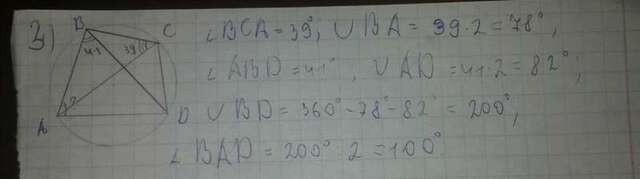 3)
B
C
41
39°
A
D
∠BCA = 39°, ∪BA = 39·2 = 78°,
∠ABD = 41°, ∪AD = 41·2 = 82°;
∪BD = 360° - 78° - 82° = 200°,
∠BAD = 200° : 2 = 100°